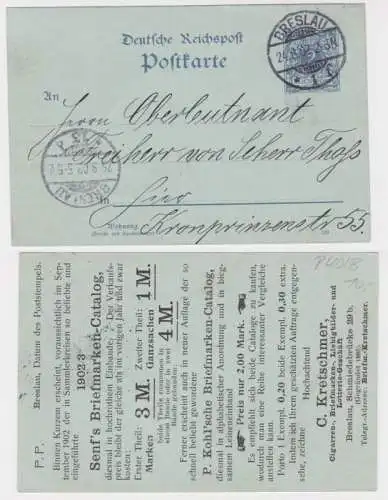 Deutsche Reichspost
Postkarte
BRESLAU
An
Herrn Oberleutnant
Freiherr von Scherr Thoss
BRESLAU
in
Hier
Wohnung
Kronprinzenstr 55.
P. P.
Breslau, Datum des Poststempels.
Binnen Kurzem erscheint voraussichtlich im Sep-
tember 1902 der in Sammlerkreisen so beliebte und
eingeführte
1902-3
Senf's Briefmarken-Catalog,
diesmal in hochrothem Einbande.
preis bleibt der gleiche wie im vorigen Jahr und zwar
Erster Theil: Marken 3 M. Zweiter Theil: Ganzsachen 1 M.
beide Theile zusammen in
zwei Bände gebunden: 4 M.
Ferner erscheint auch in neuer Auflage der so
schnell beliebt gewordene
P. Kohl'sche Briefmarken-Catalog,
diesmal in alphabetischer Anordnung und in bieg-
samem Leineneinband
Preis nur 2,00 Mark.
Es empfiehlt sich beide Cataloge zu kaufen,
wodurch man eine höchst interessanter Vergleiche
anstellen kann.
Porto 1 Exempl. 0,20 beide Exempl. 0,30 extra.
Indem ich Ihren geschätzten Aufträge entgegen-
sehe, zeichne
Hochachtend
C. Kretschmer,
Cigarren-, Briefmarken-, Liebigbilder- und
Lotterie-Geschäft
Breslau, Schmiedebrücke 29b.
(Gegründet 1880)
Telegr.-Adresse: Briefm.-Kretschmer.